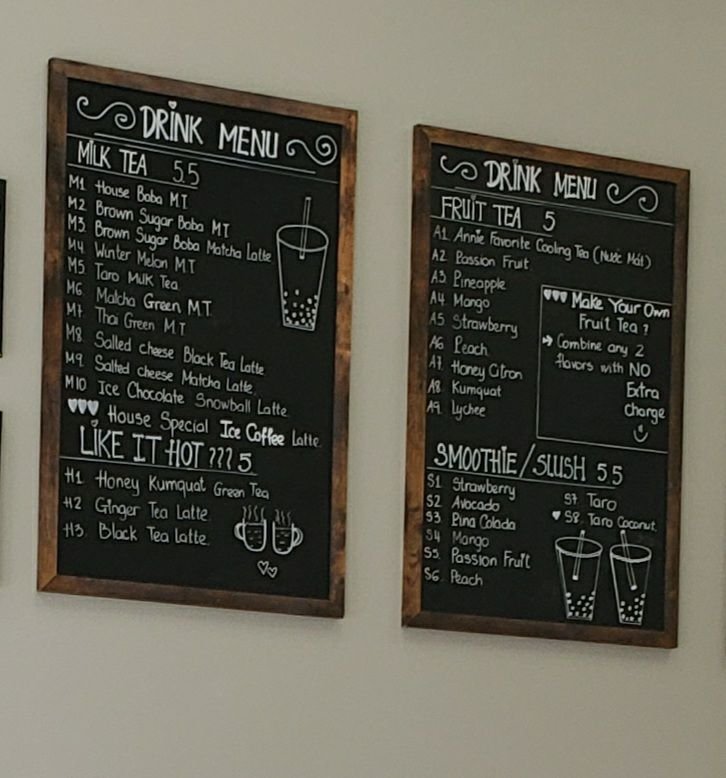 DRINK MENU
MILK TEA 5.5
M1 House Boba M.T
M2 Brown Sugar Boba M.T
M3. Brown Sugar Boba Matcha Latte
M4. Winter Melon M.T
M5. Taro Milk Tea
M6 Matcha Green M.T.
M7. Thai Green M.T
M8. Salted cheese Black Tea Latte
M9. Salted cheese Matcha Latte.
M10. Ice Chocolate Snowball Latte
House Special Ice Coffee Latte
LIKE IT HOT ??? 5
H1 Honey Kumquat Green Tea
H2 Ginger Tea Latte
H3. Black Tea Latte.
DRINK MENU
FRUIT TEA 5
A1. Annie Favorite Cooling Tea (Nước Mát)
A2 Passion Fruit
A3 Pineapple
A4 Mango
A5 Strawberry
A6 Peach
A7. Honey Citron
A8. Kumquat
A9. Lychee
Make Your Own
Fruit Tea ?
→ Combine any 2
flavors with NO
Extra
charge
SMOOTHIE/SLUSH 5.5
S1 Strawberry
S2 Avocado
S3 Pina Colada
S4 Mango
S5. Passion Fruit
S6. Peach
S7. Taro
♥ S8. Taro Coconut